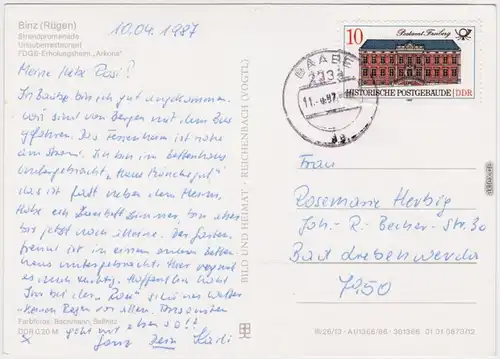 Binz (Rügen)
Strandpromenade
Urlauberrestaurant
FDGB-Erholungsheim „Arkona"
10.04.1987
Meine liebe Rosi!
In bin ich gut angekommen.
wir sind von Bergen mit dem Bus
gefahren. Das Ferienheim ist nahe
am Strand. Ich bin im Bettenhaus
untergebracht „Haus Mönchgut"
das ist fast neben dem Heim.
Habe ein Zweibettzimmer, bin aber
bis jetzt noch alleine. Der
freund ist in einem anderen Betten-
haus untergebracht. Hier regnet
es Hoffentlich hört
bei den
Regen vor allem. Ansonsten
geht mit aber so!!
Ganz Dein
Farbfotos: Bachmann, Saßnitz
DDR 0,30 M
BILD UND HEIMAT · REICHENBACH (VOGTL)
Postamt Freiberg
10
HISTORISCHE POSTGEBÄUDE DDR
BAABE
233
Frau
Rosemarie Herbig
Joh.-R.-Becher-Str. 30
Bad Liebenwerda
7950
III/26/13 · A1/1366/86 · 361366 01 01 0673/12